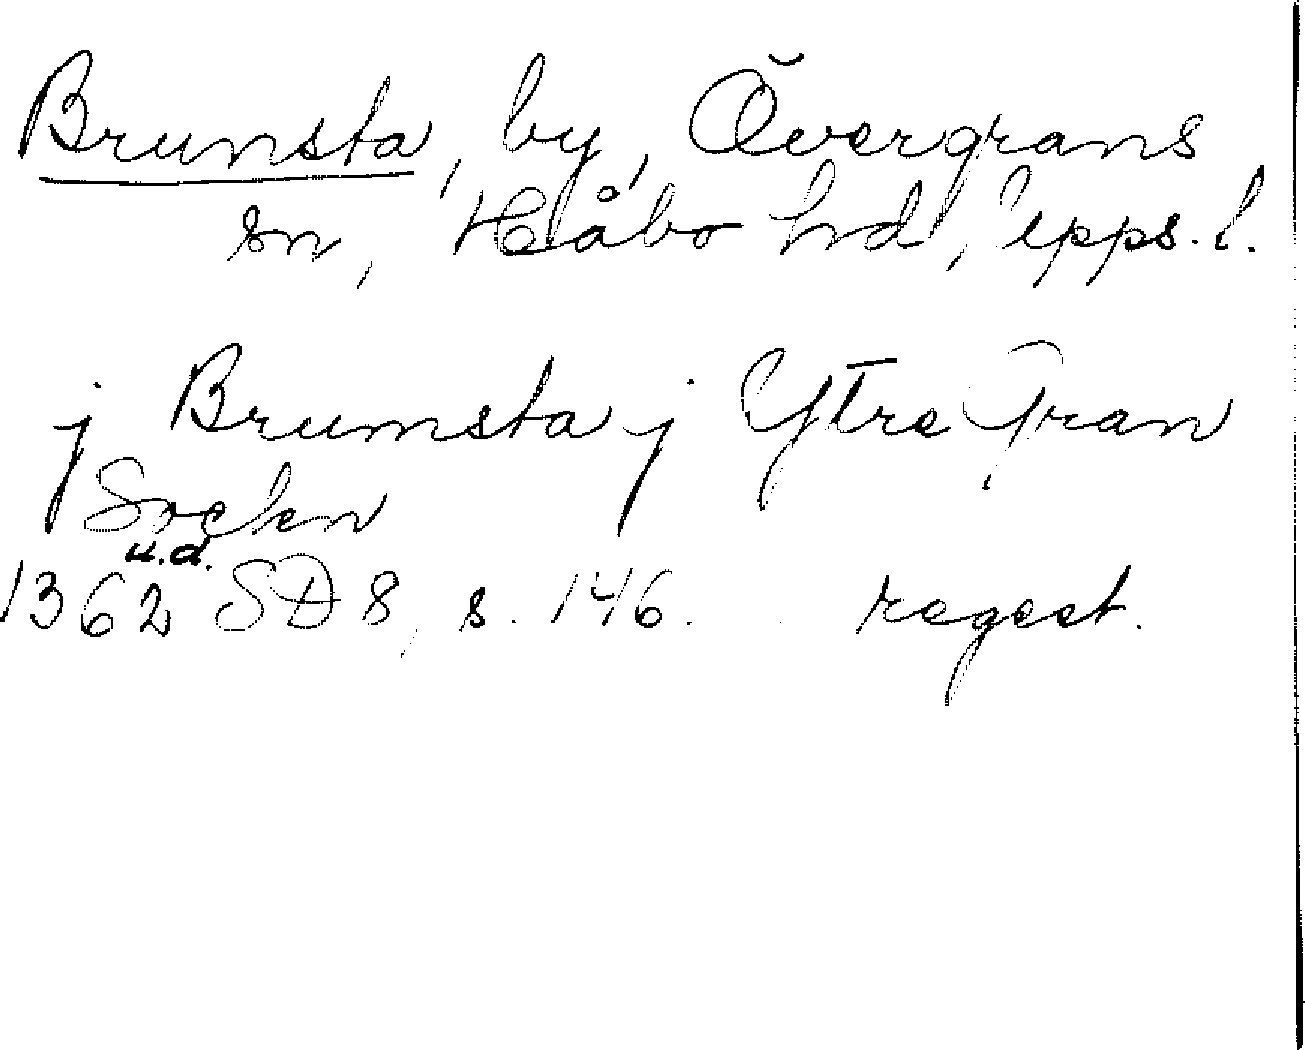 Brunsta, by, Övergrans
sn, Håbo hd, Upps. l.
j Brumsta j Ytre Gran
Sochn
u.d.
1362 SD 8, s. 146. regest.